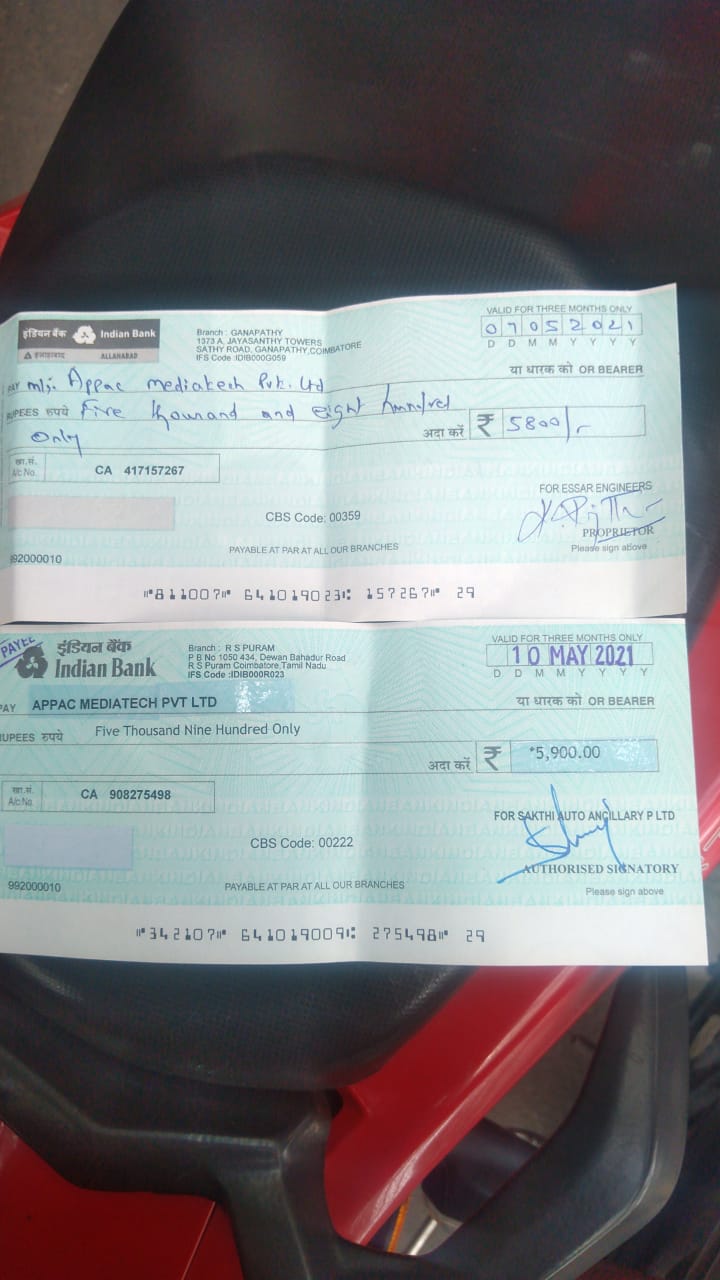 इंडियन बैंक Indian Bank
इलाहाबाद ALLAHABAD
Branch : GANAPATHY
1373 A, JAYASANTHY TOWERS
SATHY ROAD, GANAPATHY,COIMBATORE
IFS Code :IDIB000G059
VALID FOR THREE MONTHS ONLY
07052021
D D M M Y Y Y Y
या धारक को OR BEARER
PAY M/s. Appac Mediatech Pvt. Ltd
RUPEES रुपये Five thousand and eight hundred
Only
अदा करें ₹ 5800/-
खा.सं.
A/c No. CA 417157267
FOR ESSAR ENGINEERS
CBS Code: 00359
PROPRIETOR
Please sign above
PAYABLE AT PAR AT ALL OUR BRANCHES
992000010
⑈811007⑈ 641019023⑆ 157267⑈ 29
PAYEE
इंडियन बैंक
Indian Bank
Branch : R S PURAM
P B No 1050 434, Dewan Bahadur Road
R S Puram Coimbatore,Tamil Nadu
IFS Code :IDIB000R023
VALID FOR THREE MONTHS ONLY
10 MAY 2021
D D M M Y Y Y Y
PAY APPAC MEDIATECH PVT LTD
या धारक को OR BEARER
RUPEES रुपये Five Thousand Nine Hundred Only
अदा करें ₹ *5,900.00
खा.सं.
A/c No. CA 908275498
FOR SAKTHI AUTO ANCILLARY P LTD
CBS Code: 00222
AUTHORISED SIGNATORY
Please sign above
PAYABLE AT PAR AT ALL OUR BRANCHES
992000010
⑈342107⑈ 641019009⑆ 275498⑈ 29